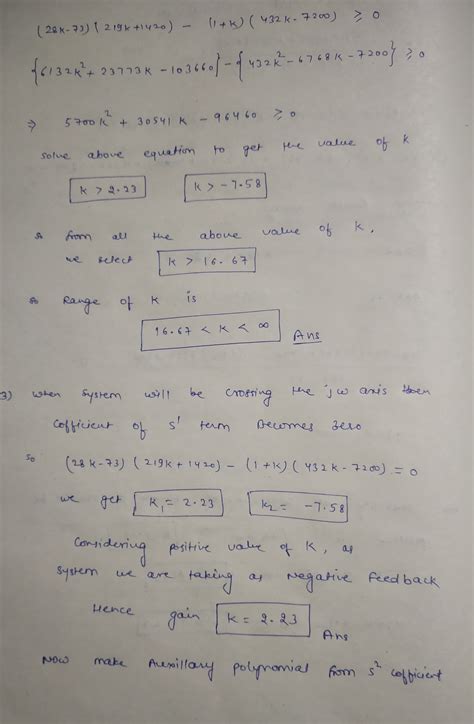 (28k-73)(219k+1420) - (1+k)(432k-7200) ≥ 0
{6132k²+23773k-103660}-{432k²-6768k-7200} ≥ 0
⇒ 5700k² + 30541k - 96460 ≥ 0
solve above equation to get the value of k
k > 2.23 k > -7.58
so from all the above value of k,
we select k > 16.67
so Range of k is
16.67 < k < ∞ Ans
3) when system will be crossing the jw axis then
cofficient of s' term Becomes zero
so (28k-73)(219k+1420)-(1+k)(432k-7200)=0
we get k₁=2.23 k₂= -7.58
Considering positive value of k, as
system we are taking as Negative feedback
Hence gain k=2.23 Ans
Now make Auxillary polynomial from s² cofficient